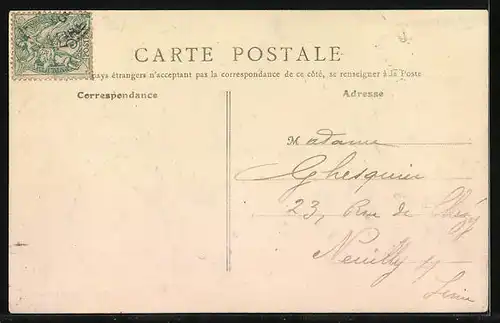 CARTE POSTALE
pays étrangers n'acceptant pas la correspondance de ce côté, se renseigner à la Poste
Correspondance
Adresse
Madame
Ghesquier
23, Rue de Chézy
Neuilly s/
Seine